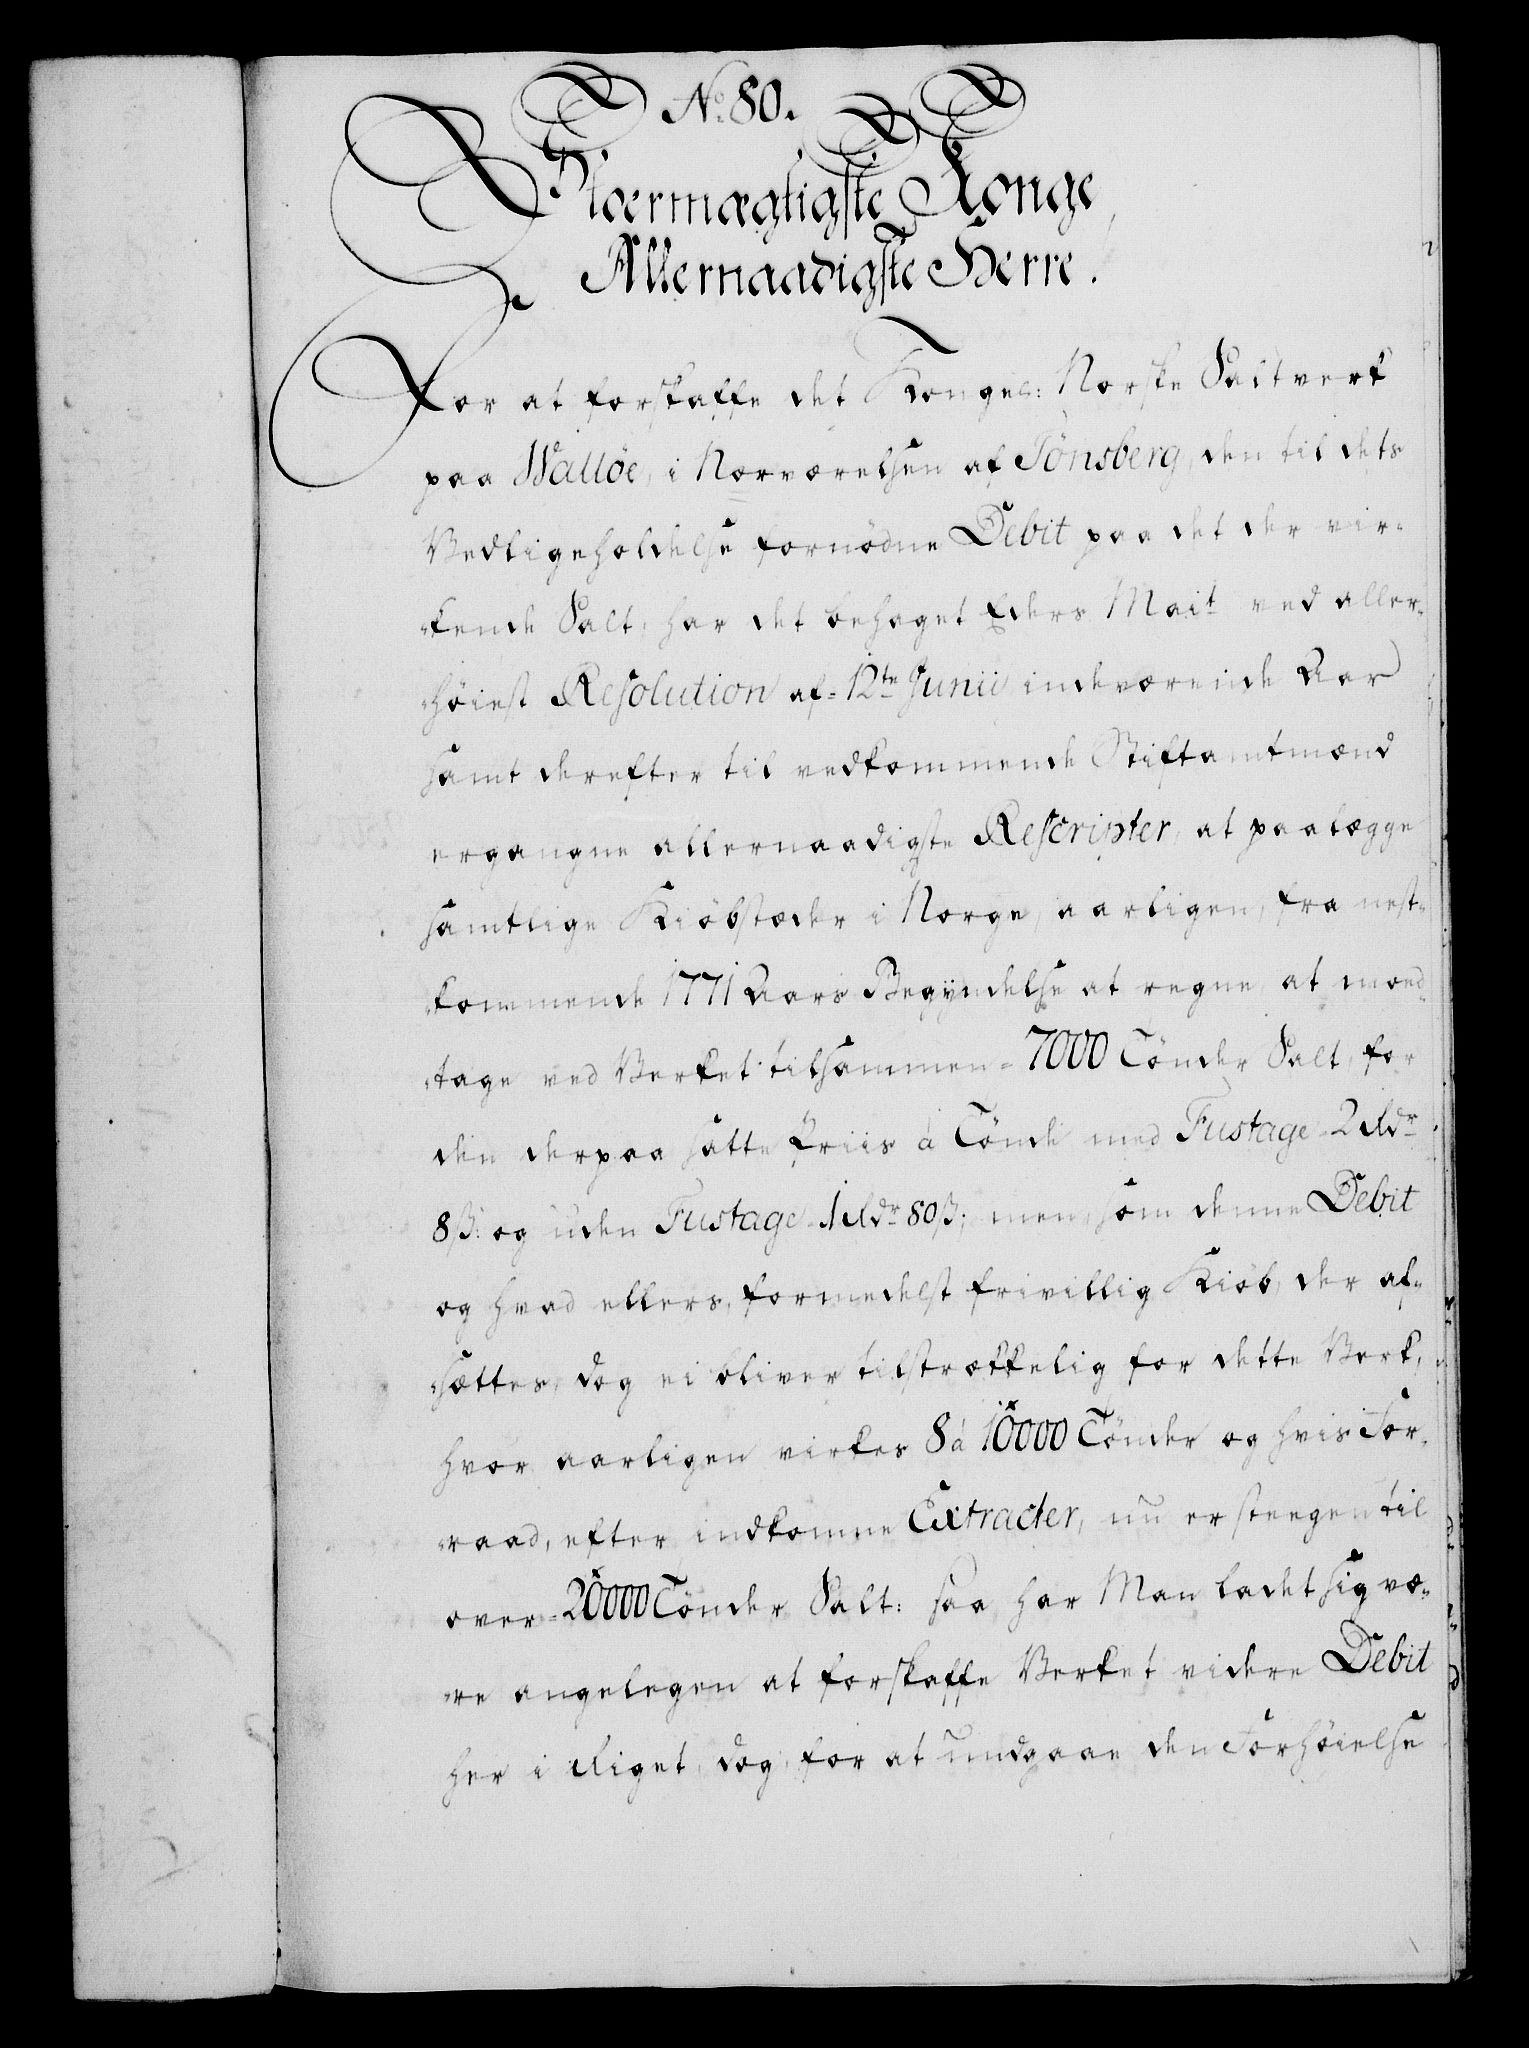 No. 80.
Stoermægtigste Konge
Allernaadigste Herre.
For at forskaffe det Kongel: Norske Saltverk
paa Walløe, i Nærværelsen af Tönsberg, den til dets
Vedligeholdelse fornødne Debit paa det der vir-
kende Salt, har det behaget Eders Mait ved aller-
høiest Resolution af 12te Junii indeværende Aar
samt derefter til vedkommende Stiftamtmænd
ergangne allernaadigste Rescripter, at paalægge
samtlige Kiöbstæder i Norge, aarligen, fra nest-
kommende 1771 Aars Begyndelse at regne, at mod-
tage ved Verket tilsammen 7000 Tönder Salt, for
den derpaa satte Priis à Tönde med Fustage 2 Rdr
8 ß: og uden Fustage 1 Rdr 80 ß; men, som denne Debit
og hvad ellers, formedelst frivillig Kiöb, der af-
sættes, dog ei bliver tilstrækkelig for dette Verk,
hvor aarligen virkes 8 à 10000 Tönder og hvis For-
raad, efter indkomne Extracter, nu er steegen til
over 20000 Tönder Salt: saa har Man ladet sig væ-
re angelegen at forskaffe Verket videre Debit
her i Riget, dog, for at undgaae den Forhøielse